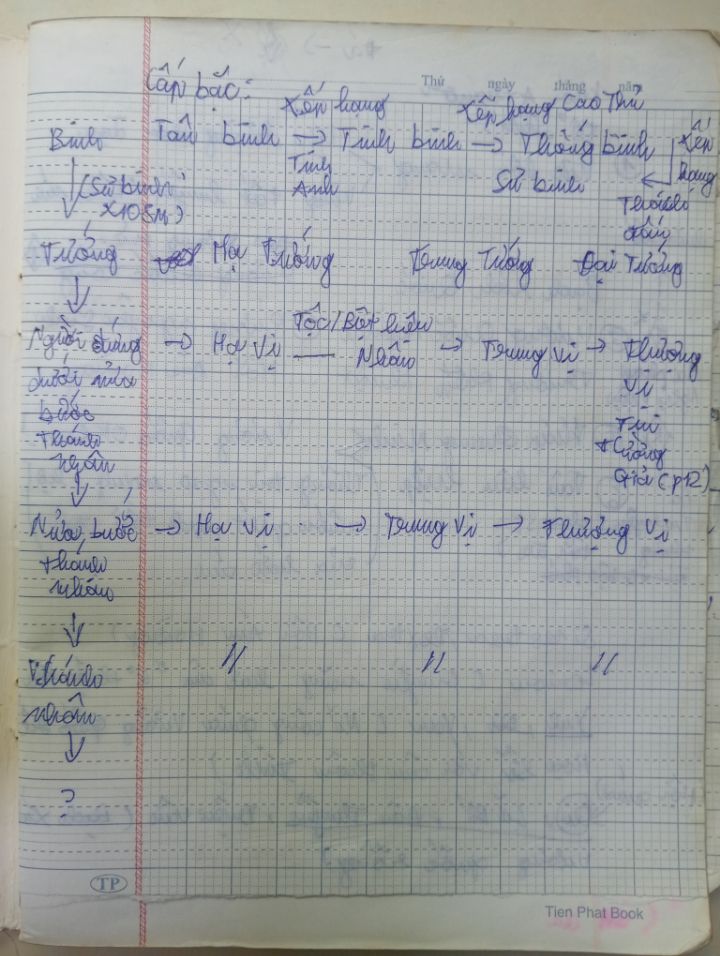 Thứ ngày tháng năm
Cấp bậc:
Xếp hạng Xếp hạng Cao Thủ
Binh Tân binh → Tinh binh → Thống binh Xếp hạng
(Sứ binh Tinh Anh Sứ binh
Tướng Hạ Tướng Trung Tướng Đại Tướng
Người đứng → Hạ Vị Tộc/Biệt hiệu Nhân → Trung vị → Thượng Vị
dưới nửa
bước
Thánh
ngân
Nửa bước → Hạ Vị → Trung Vị → Thượng Vị
thánh
nhân
Thánh // // //
nhân
?
TP
Tien Phat Book